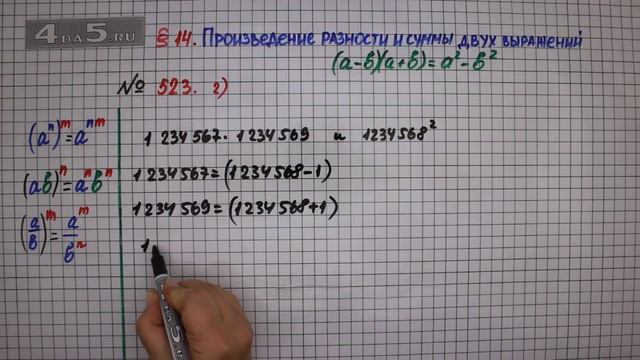 4DA5.RU
§ 14. Произведение разности и суммы двух выражений
(a-b)(a+b)=a²-b²
№ 523. г)
(aⁿ)ᵐ=aⁿᵐ
(ab)ⁿ=aⁿbⁿ
(a/b)ᵐ=aᵐ/bⁿ
1 234 567 · 1 234 569 и 1234568²
1 234 567=(1 234 568-1)
1 234 569=(1 234 568+1)
1
4DA5.RU